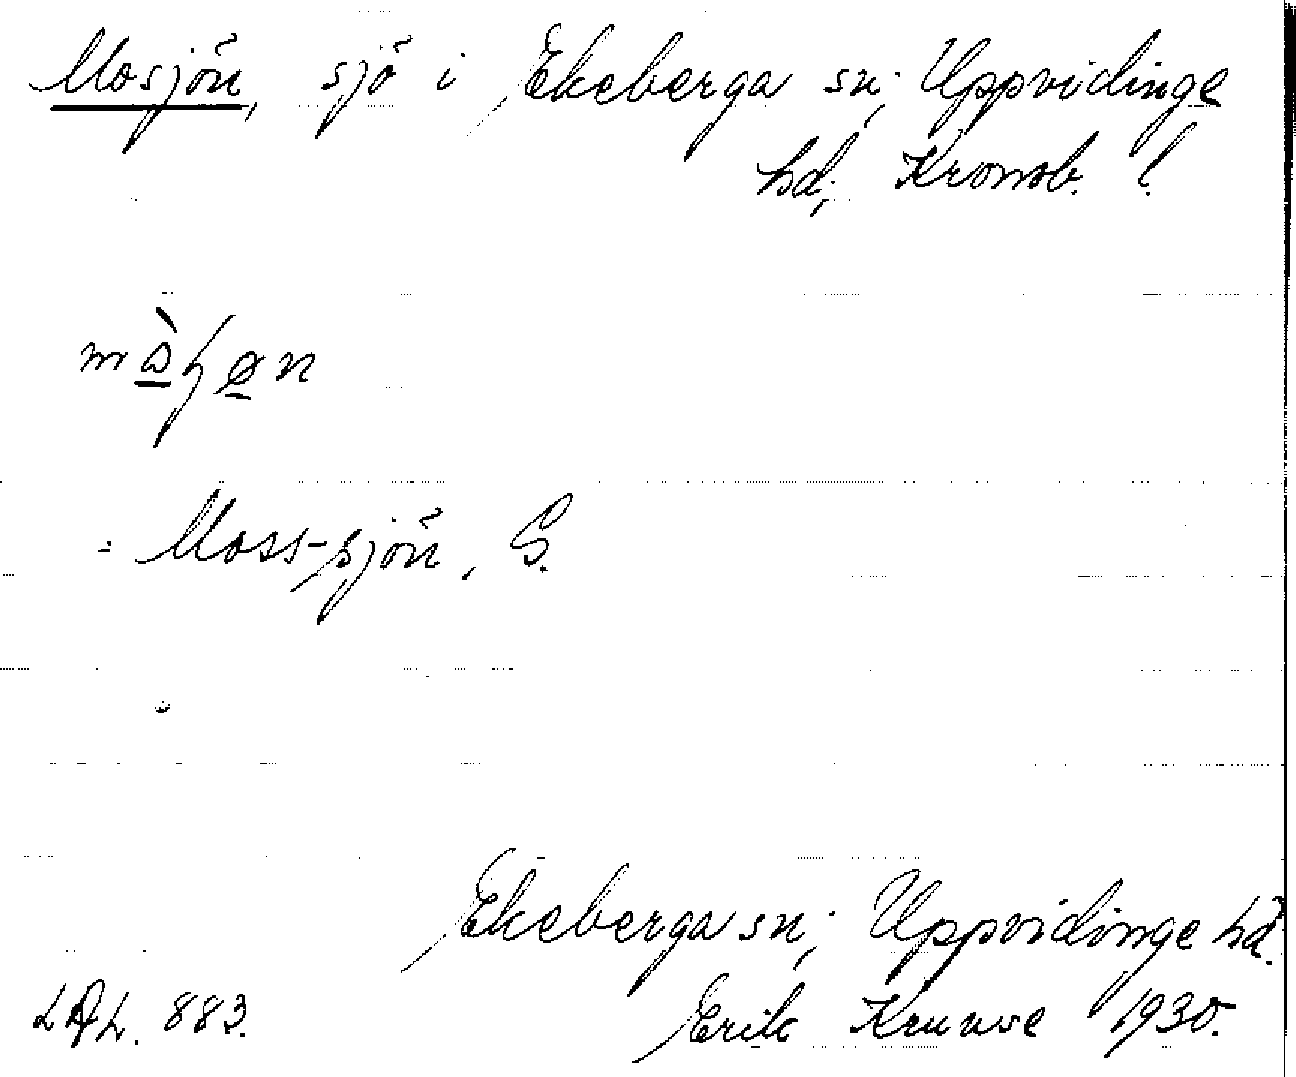 Mosjön, sjö i Ekeberga sn; Uppvidinge
hd; Kronob. l.
= Moss-sjön, G.
Ekeberga sn; Uppvidinge hd.
LAL. 883. Erik Kruuse 1930.